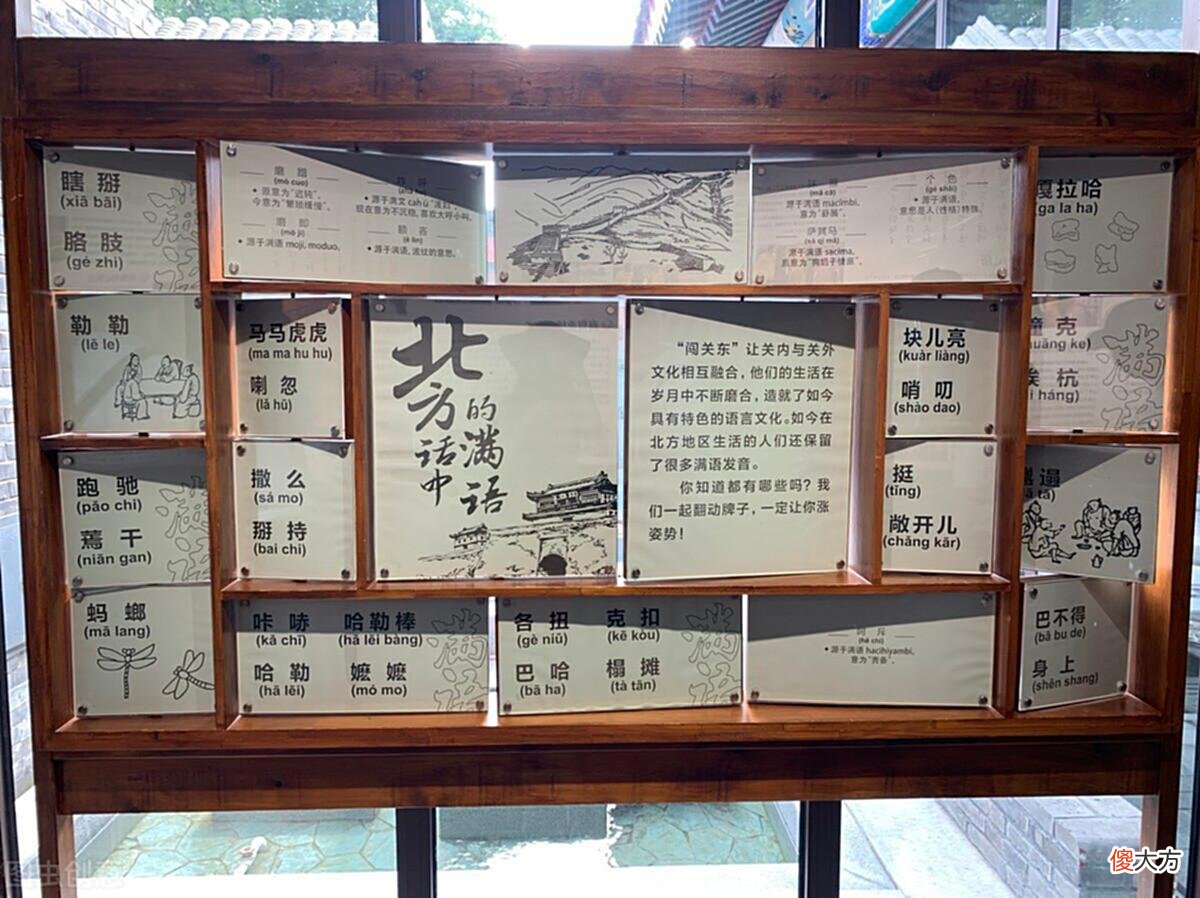 瞎 掰
(xiā bāi)
胳 肢
(gé zhi)
磨 蹭
(mò cuo)
• 原意为“迟钝”。
今意为“繁琐缓慢”。
磨 即
(mò ji)
• 源于满语 moji, moduo,
• 源于满文 cahū
现在意为不沉稳,喜欢大呼小叫。
(ē lin)
• 源于满语, 波纹的意思。
(mà cà)
源于满语 macimbi,
意为“舒展”。
萨其马
(sà qí mǎ)
源于满语 sacima,
个 色
(gè shǎi)
• 源于满语,
意思是人(性格)特殊。
嘎拉哈
(ga la ha)
勒 勒
(lē le)
马马虎虎
(ma ma hu hu)
喇 忽
(lǎ hū)
北方话中
的满语
“闯关东”让关内与关外
文化相互融合,他们的生活在
岁月中不断磨合,造就了如今
具有特色的语言文化。如今在
北方地区生活的人们还保留
了很多满语发音。
你知道都有哪些吗?我
们一起翻动牌子,一定让你涨
姿势!
块儿亮
(kuàr liàng)
哨 叨
(shào dao)
克
(uāng ke)
杭
(i háng)
跑 驰
(pāo chi)
蔫 干
(niān gan)
撒 么
(sá mo)
掰 持
(bai chi)
挺
(tǐng)
敞开儿
(chǎng kār)
邋遢
蚂 螂
(mā lang)
咔 哧
(kā chī)
哈勒棒
(hā lēi bàng)
哈 勒
(hā lēi)
嬷 嬷
(mó mo)
各 扭
(gè niǔ)
克 扣
(kē kòu)
巴 哈
(bā ha)
榻 摊
(tà tān)
• 源于满语 hacihiyambi,
意为“责备”。
巴不得
(bā bu de)
身 上
(shēn shang)
满语
满语
满语
满语
满语
傻大方